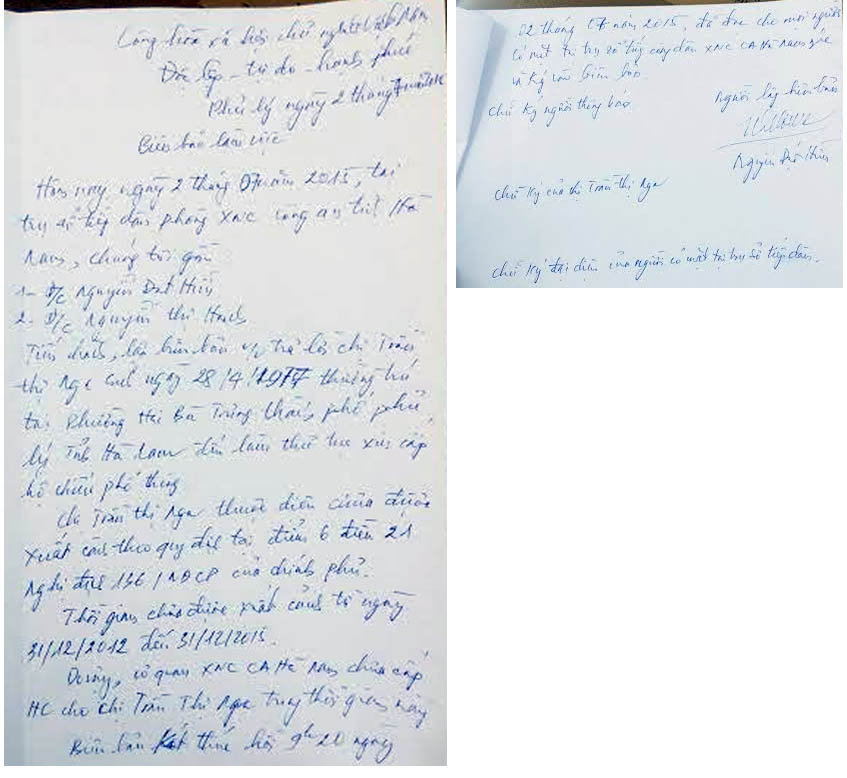 Cộng hòa xã hội chủ nghĩa Việt Nam
Độc lập - tự do - hạnh phúc
Phủ lý ngày 2 tháng 7 năm 2015
Biên bản làm việc
Hôm nay, ngày 2 tháng 07 năm 2015, tại
trụ sở tiếp dân phòng XNC công an tỉnh Hà
Nam, chúng tôi gồm
1- Đ/c Nguyễn Đạt Hiếu
2- Đ/c Nguyễn Thị Hạnh
Tiến hành, lập biên bản v/v trả lời chị Trần
thị Nga sinh ngày 28/4/1977 thường trú
tại Phường Hai Bà Trưng thành phố phủ
lý Tỉnh Hà Nam đến làm thủ tục xin cấp
hộ chiếu phổ thông
Chị Trần thị Nga thuộc diện chưa được
xuất cảnh theo quy định tại điểm 6 điều 21
Nghị định 136/NĐCP của chính phủ.
Thời gian chưa được xuất cảnh từ ngày
31/12/2012 đến 31/12/2015.
Do vậy, cơ quan XNC CA Hà Nam chưa cấp
HC cho chị Trần Thị Nga trong thời gian này
Biên bản kết thúc hồi 9h20 ngày
02 tháng 07 năm 2015, đã đọc cho mọi người
có mặt tại trụ sở tiếp công dân XNC CA Hà Nam nghe
và ký vào biên bản.
Chữ ký người thông báo
Người lập biên bản
Nguyễn Đạt Hiếu
Chữ ký của chị Trần Thị Nga
Chữ ký đại diện của người có mặt tại trụ sở tiếp dân.